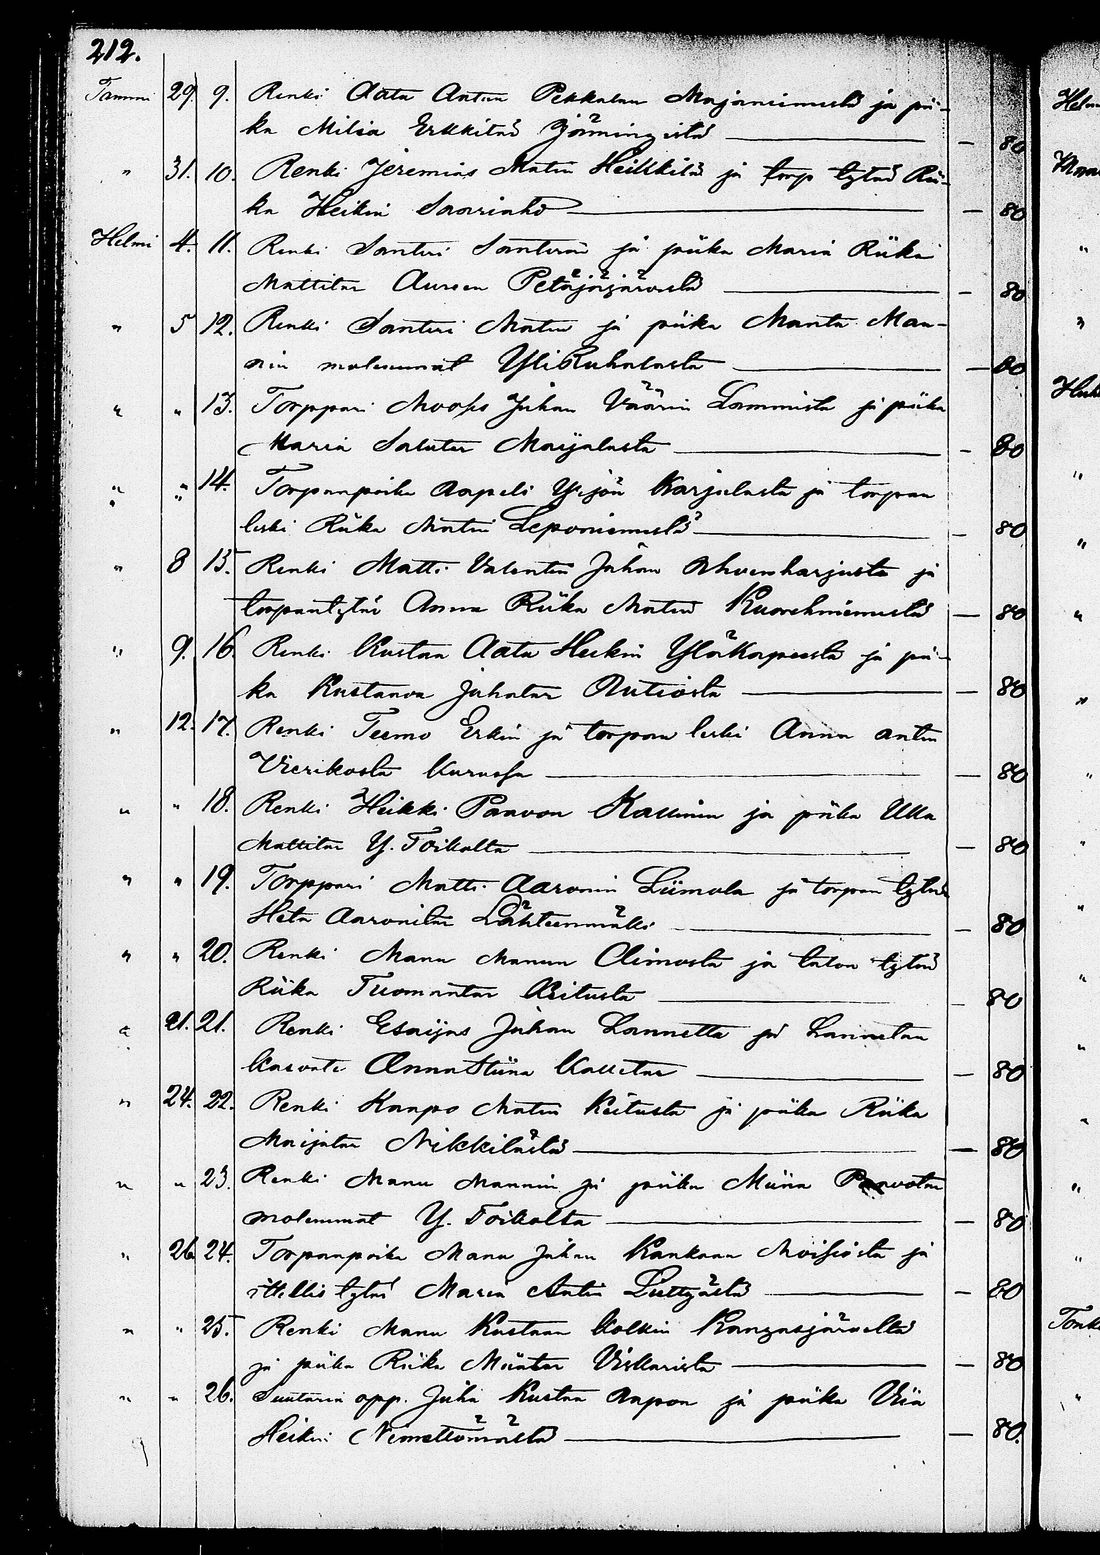 212.
Tammi 29. 9. Renki Aata Antin Pekkalan Majaniemestä ja pii-
ka Milia Erkkitär — 80
" 31. 10. Renki Jeremias Matin Heikkilä ja torp tytär Rii-
ka Heikin Saariaho — 80
Helmi 4. 11. Renki Santeri Santerin ja piika Maria Riika
Mattitar Aureen Petäjäjärveltä — 80
" 5 12. Renki Santeri Matin ja piika Manta Man-
nin molemmat YliKuhalasta — 80
" " 13. Torppari Moses Juhan Väärin Lammista ja piika
Maria Maijalasta — 80
" " 14. Torpanpoika Aapeli Yrjön Karjulasta ja torpan
leski Riika Matin Leponiemestä — 80
" 8 15. Renki Matti Valentin Juhan Ahvenharjusta ja
torpantytär Anna Riika Matin Kuorehniemestä — 80
" 9. 16. Renki Kustaa Aata Heikin YläKapeesta ja pii-
ka Kustaava Juhatar Autiosta — 80
" 12. 17. Renki Teemo Erkin ja torpan leski Anna Antin
Vierikosta Kurussa — 80
" " 18. Renki Heikki Paavon Kallinin ja piika Ulla
Mattitar Y. Toikolta — 80
" " 19. Torppari Matti Aaronin Liimola ja torpan tytär
Heta Aaronitar Lähteenmäki — 80
" " 20. Renki Manu Manun Olimosta ja talon tytär
Riika Tuomantar Keitusta — 80
" 21. 21. Renki Esaijas Juhan Lannetta ja Lannetan
kasvatti AnnaStiina Kalletar — 80
" 24. 22. Renki Kaapo Matin Keitusta ja piika Riika
Maijatar Nikkilästä — 80
" " 23. Renki Manu Mannin ja piika Miina Paavotar
molemmat Y. Toikolta — 80
" 26 24. Torpanpoika Manu Juhan Kankaan Moisiosta ja
itsellis tytär Maria Antin — 80
" " 25. Renki Manu Kustaan Kolkin Kangasjärveltä
ja piika Riika Viskarista — 80
" " 26. Suutarin opp. Juha Kustaa Aapon ja piika Viia
Heikin Nimettömästä — 80.